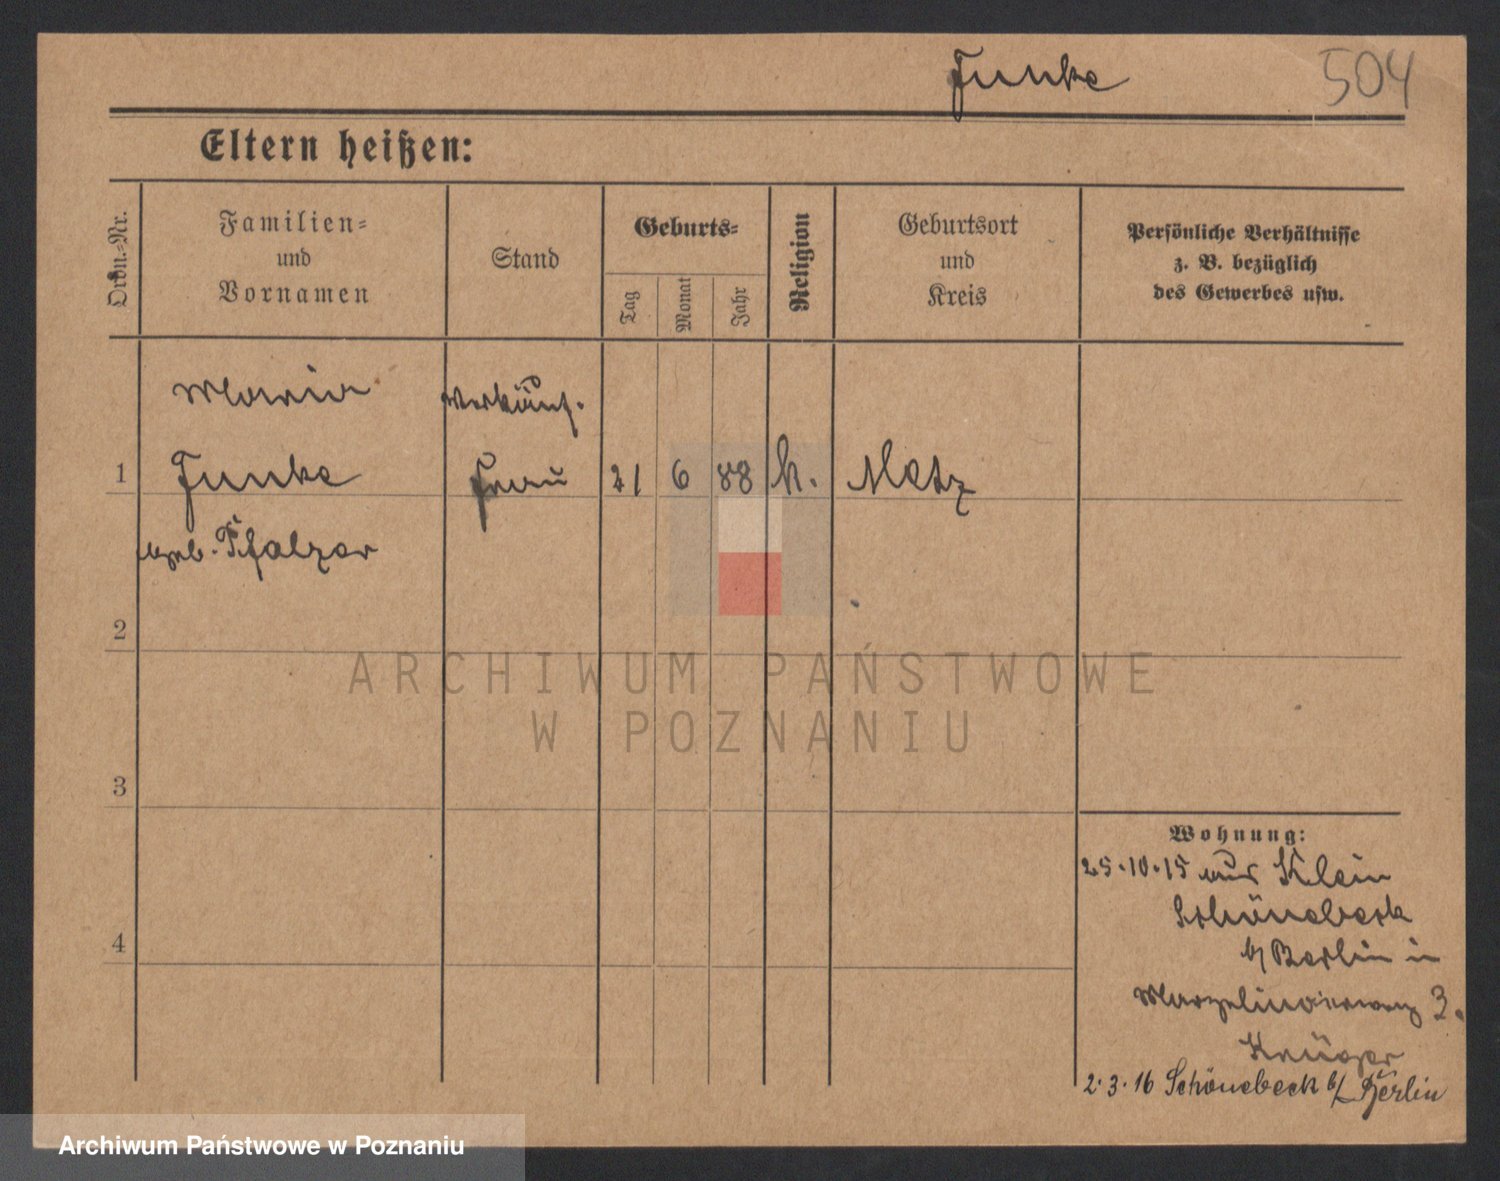 Funke
504
Eltern heißen:
Ordn.-Nr.
Familien-
und
Vornamen
Stand
Geburts-
Tag
Monat
Jahr
Religion
Geburtsort
und
Kreis
Persönliche Verhältnisse
z. B. bezüglich
des Gewerbes usw.
Maria
Verkäuf.
1 Funke Frau 21 6 88 k. Metz
geb. Pfalzer
2
3
4
Wohnung:
25.10.15 aus Klein
Schönebeck
b/ Berlin in
3.
Krüger
2.3.16 Schönebeck b/ Berlin
ARCHIWUM PAŃSTWOWE
W POZNANIU
Archiwum Państwowe w Poznaniu